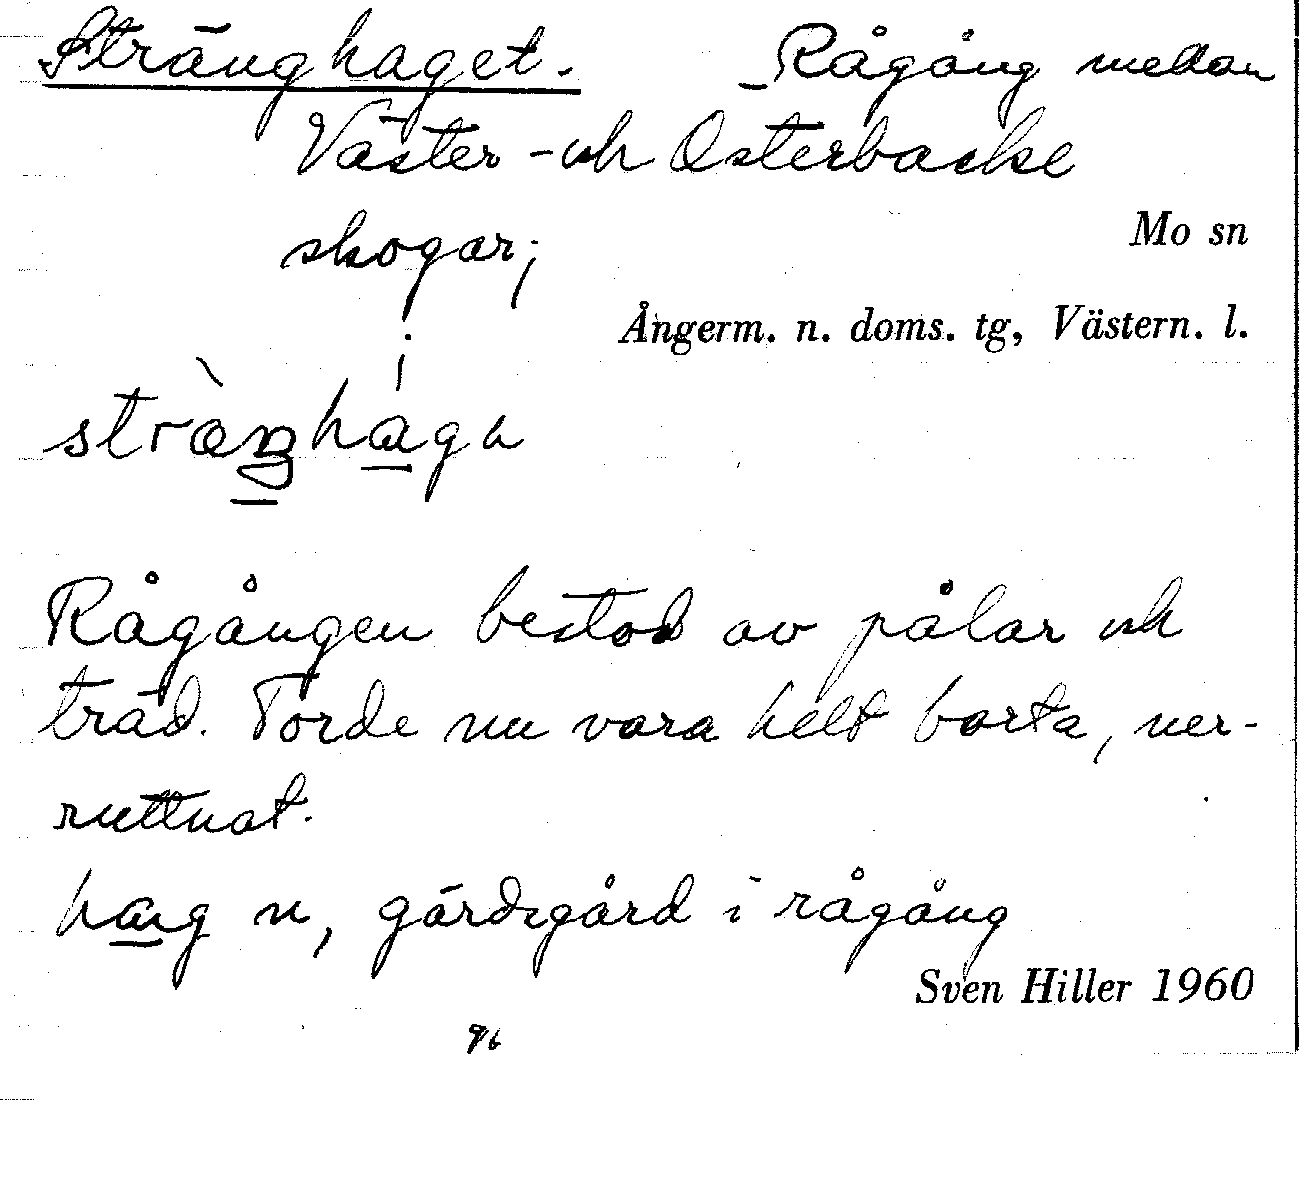 Stränghaget. Rågång mellan
Väster- och Österbacke
skogar;
Mo sn
Ångerm. n. doms. tg, Västern. l.
Rågången bestod av pålar och
träd. Torde nu vara helt borta, ner-
ruttnat.
hag n, gärdsgård i rågång
Sven Hiller 1960